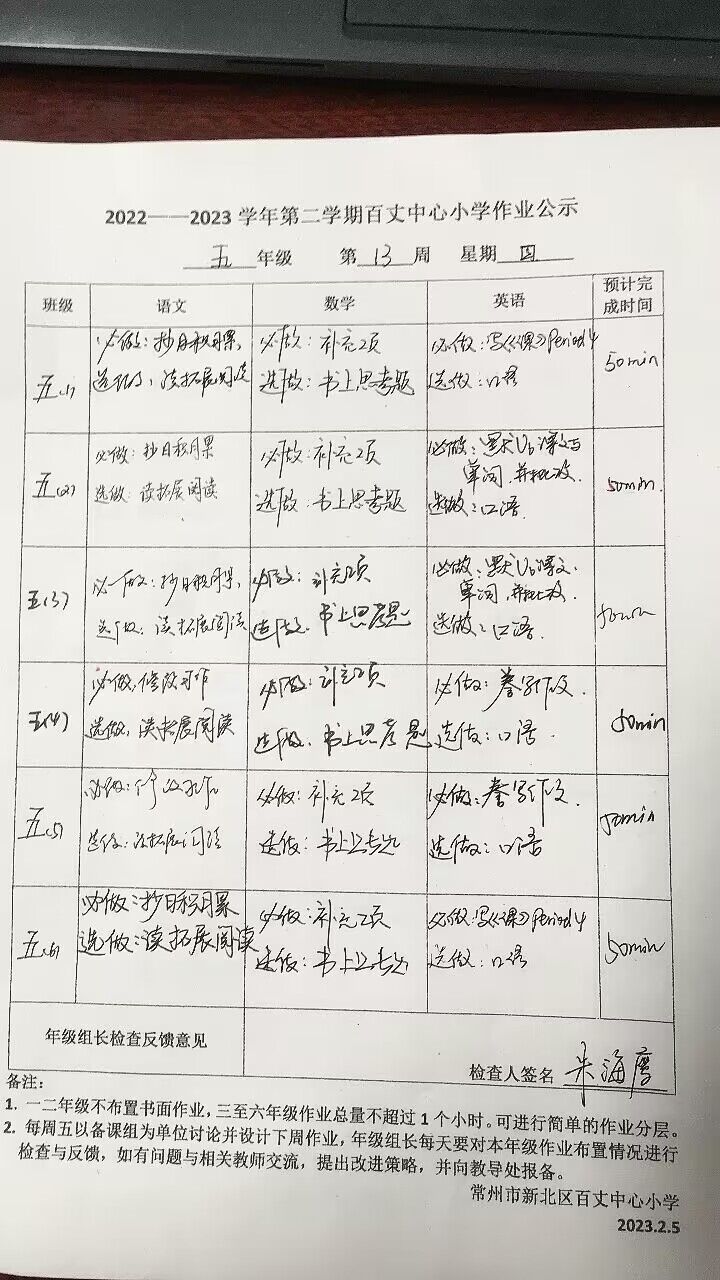 2022——2023 学年第二学期百丈中心小学作业公示
五 年级 第 13 周 星期 四
班级 语文 数学 英语 预计完成时间
五(1) 必做：抄日积月累， 必做：补充2项 必做：写《课》Period 4 50min
选做：读拓展阅读 选做：书上思考题 选做：口语
五(2) 必做：抄日积月累 必做：补充2项 必做：默U6课文与 50min.
单词，并批改.
选做：读拓展阅读 选做：书上思考题 选做：口语.
五(3) 必做：抄日积月累， 必做：补充2项 必做：默U6课文、 50min
单词，并批改.
选做：读拓展阅读 选做：书上思考题 选做：口语.
五(4) 必做：修改习作 必做：补充2项 必做： 50min
选做：读拓展阅读 选做：书上思考题 选做：口语.
五(5) 必做：修改习作 必做：补充2项 必做： 50min
选做：读拓展阅读 选做：书上思考题 选做：口语
五(6) 必做：抄日积月累 必做：补充2项 必做：写《课》Period 4 50min
选做：读拓展阅读 选做：书上思考题 选做：口语
年级组长检查反馈意见
检查人签名 朱海鹰
备注：
1. 一二年级不布置书面作业，三至六年级作业总量不超过 1 个小时。可进行简单的作业分层。
2. 每周五以备课组为单位讨论并设计下周作业，年级组长每天要对本年级作业布置情况进行
检查与反馈，如有问题与相关教师交流，提出改进策略，并向教导处报备。
常州市新北区百丈中心小学
2023.2.5